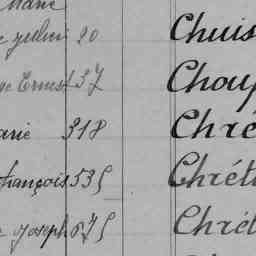 Marie
Jules 20 Chuis
Ernest 37 Chou
arie 318 Chré
François 535 Chrét
Joseph 875 Chrét